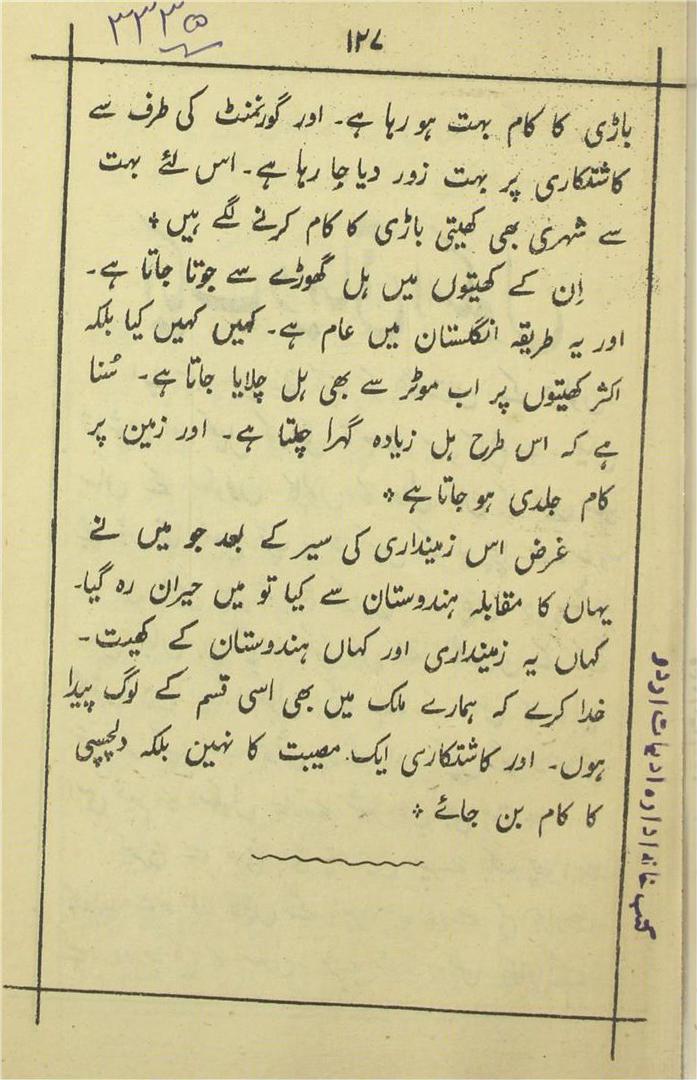 ۳۳۳۵
۱۲۷
باڑی کا کام بہت ہو رہا ہے۔ اور گورنمنٹ کی طرف سے
کاشتکاری پر بہت زور دیا جا رہا ہے۔ اس لئے بہت
سے شہری بھی کھیتی باڑی کا کام کرنے لگے ہیں ٭
اِن کے کھیتوں میں ہل گھوڑے سے جوتا جاتا ہے۔
اور یہ طریقہ انگلستان میں عام ہے۔ کہیں کہیں کیا بلکہ
اکثر کھیتوں پر اب موٹر سے بھی ہل چلایا جاتا ہے۔ سُنا
ہے کہ اس طرح ہل زیادہ گہرا چلتا ہے۔ اور زمین پر
کام جلدی ہو جاتا ہے ٭
غرض اس زمینداری کی سیر کے بعد جو میں نے
یہاں کا مقابلہ ہندوستان سے کیا تو میں حیران رہ گیا۔
کہاں یہ زمینداری اور کہاں ہندوستان کے کھیت۔
خدا کرے کہ ہمارے ملک میں بھی اسی قسم کے لوگ پیدا
ہوں۔ اور کاشتکاری ایک مصیبت کا نہین بلکہ دلچسپی
کا کام بن جائے ٭
کتب خانہ ادارہ ادبیات اردو